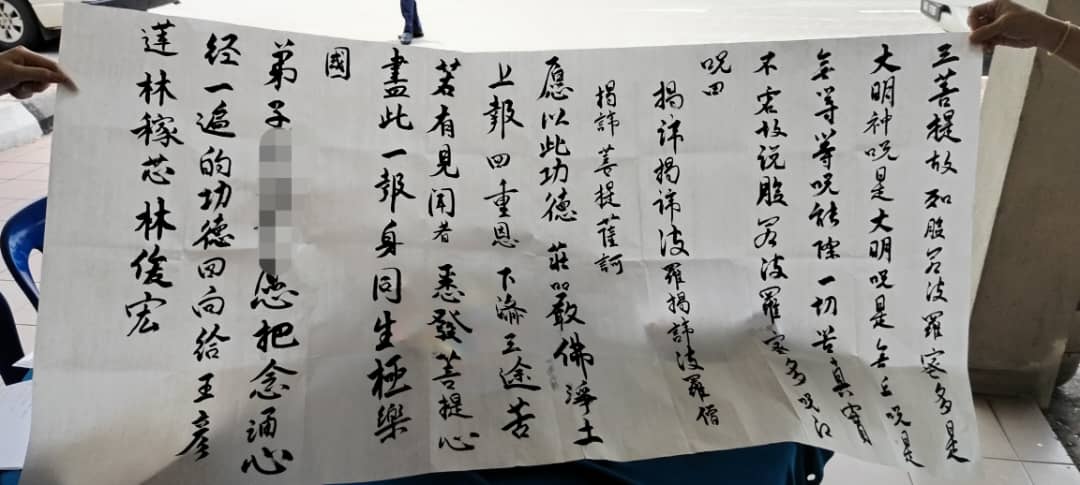 三菩提故知般若波羅密多是
大明神咒是大明咒是無上咒是
無等等咒能除一切苦真實
不虚故说般若波羅密多咒即
呪曰
揭諦揭諦波羅揭諦波羅僧
揭諦菩提薩訶
愿以此功德 莊嚴佛淨土
上報四重恩 下濟三途苦
若有見聞者 悉發菩提心
盡此一報身同生極樂
國
弟子 愿把念诵心
经一遍的功德回向给王彦
莲林稼芯林俊宏